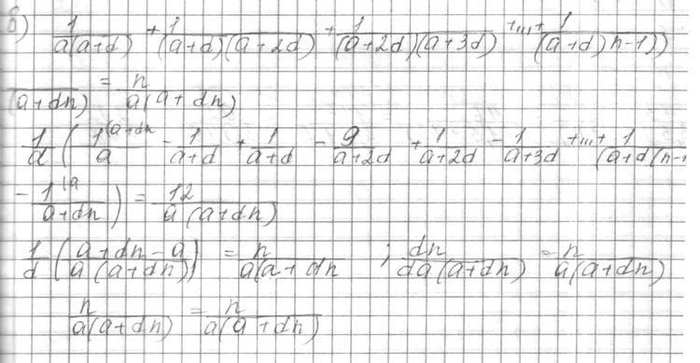 б) 1/(a(a+d)) + 1/((a+d)(a+2d)) + 1/((a+2d)(a+3d)) +...+ 1/((a+d)n-1))
/(a+dn) = n/(a(a+dn)
1/d ( 1/a (a+dn - 1/(a+d) + 1/(a+d) - 9/(a+2d) + 1/(a+2d) - 1/(a+3d) +...+ 1/(a+d(n-
- 1/(a+dn) (a ) = 12/(a(a+dn)
1/d ( (a+dn-a)/(a(a+dn)) ) = n/(a(a+dn ; dn/(da(a+dn) = n/(a(a+dn)
n/(a(a+dn) = n/(a(a+dn)